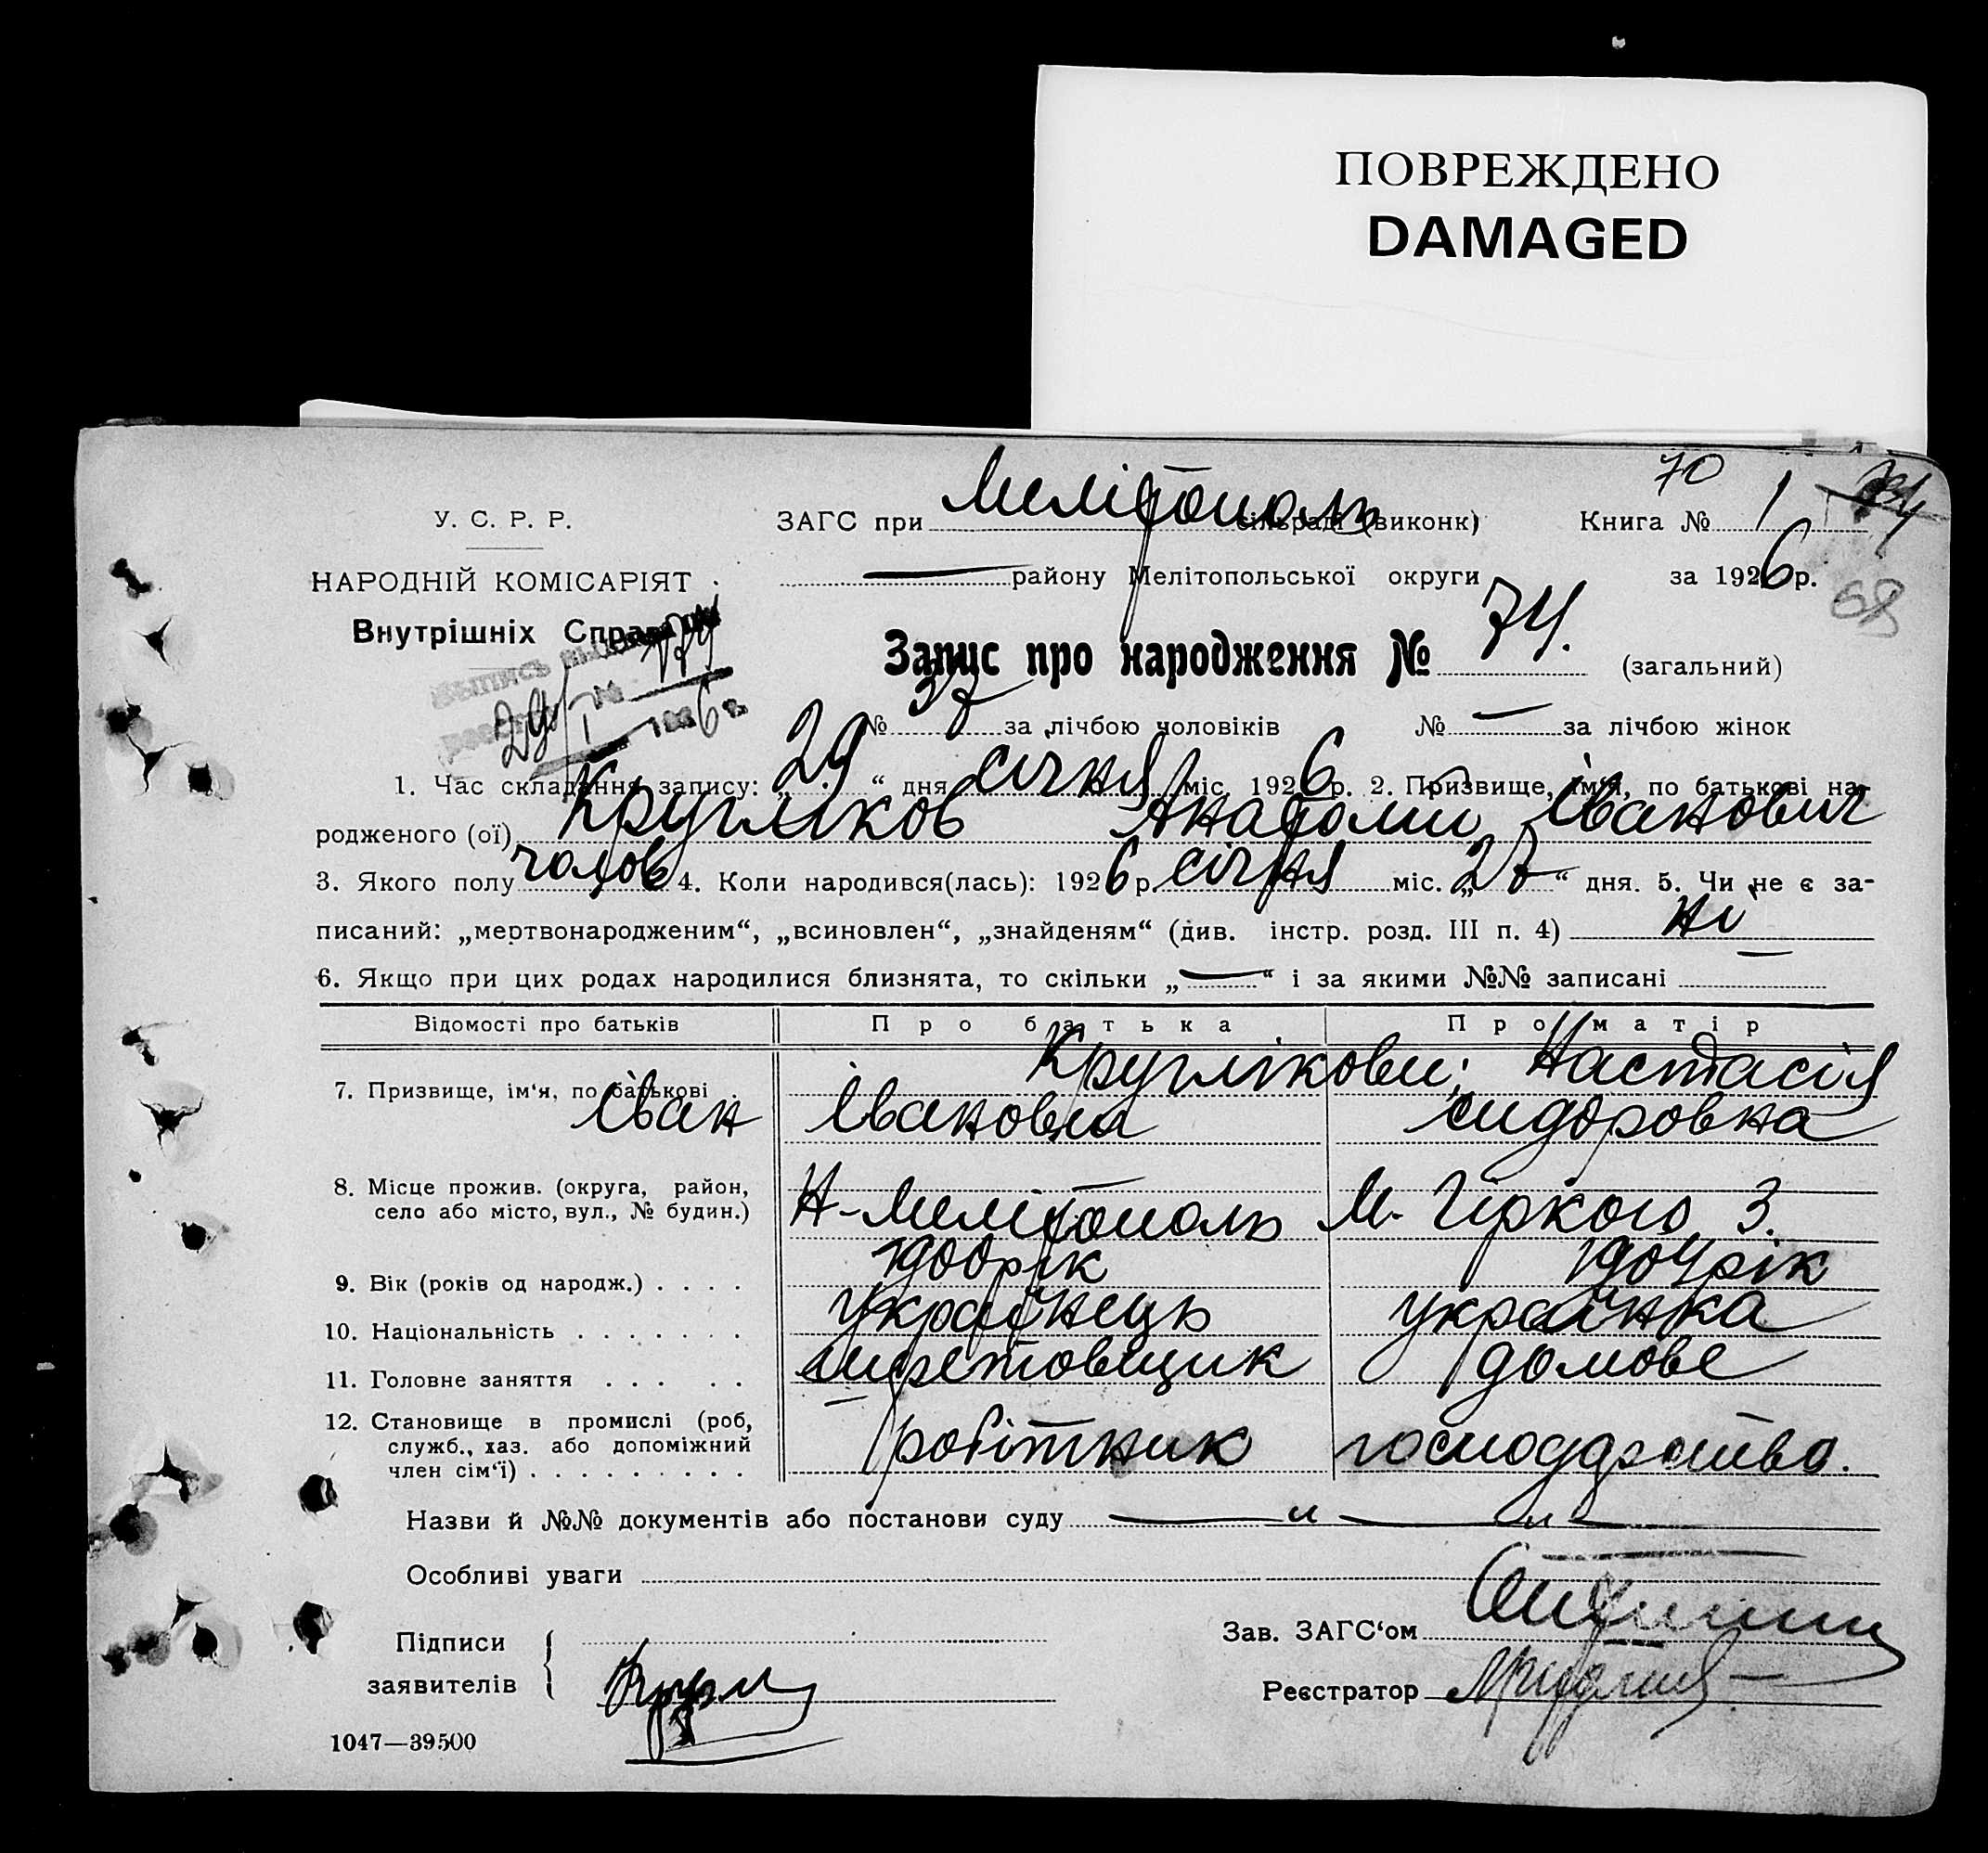 ПОВРЕЖДЕНО
DAMAGED
70
У. С. Р. Р.
ЗАГС при Мелітополь сільраді (виконк) Книга № 1
НАРОДНІЙ КОМІСАРІЯТ
— району Мелітопольської округи за 1926 р.
68
Внутрішніх Справ
Запис про народження № 74. (загальний)
выпись
29/I 1926 г.
№ 37 за лічбою чоловіків № — за лічбою жінок
1. Час складання запису: „29“ дня січня міс. 1926 р. 2. Призвище, ім'я, по батькові на-
родженого (ої) Кругліков Анатолий Іванович
3. Якого полу чолов 4. Коли народився(лась): 1926 р. січня міс. „27“ дня. 5. Чи не є за-
писаний: „мертвонародженим“, „всиновлен“, „знайденям“ (див. інстр. розд. III п. 4) ні
6. Якщо при цих родах народилися близнята, то скільки „—“ і за якими №№ записані —
Відомості про батьків Про батька Про матір
Круглікови; Настасія
7. Призвище, ім‘я, по батькові
Іван Іванович Сидоровна
8. Місце прожив. (округа, район,
село або місто, вул., № будин.) Н-Мелітополь М. Гіркого 3.
9. Вік (років од народж.) . . . . 1900 рік 1904 рік
10. Національність . . . . . . . українець українка
11. Головне заняття . . . . . домове
12. Становище в промислі (роб,
служб., хаз. або допоміжний
член сім‘ї) . . . . . . . . . робітник господарство.
Назви й №№ документів або постанови суду — „ — „ —
Особливі уваги
Підписи
заявителів
Зав. ЗАГС‘ом
Реєстратор
1047—39500